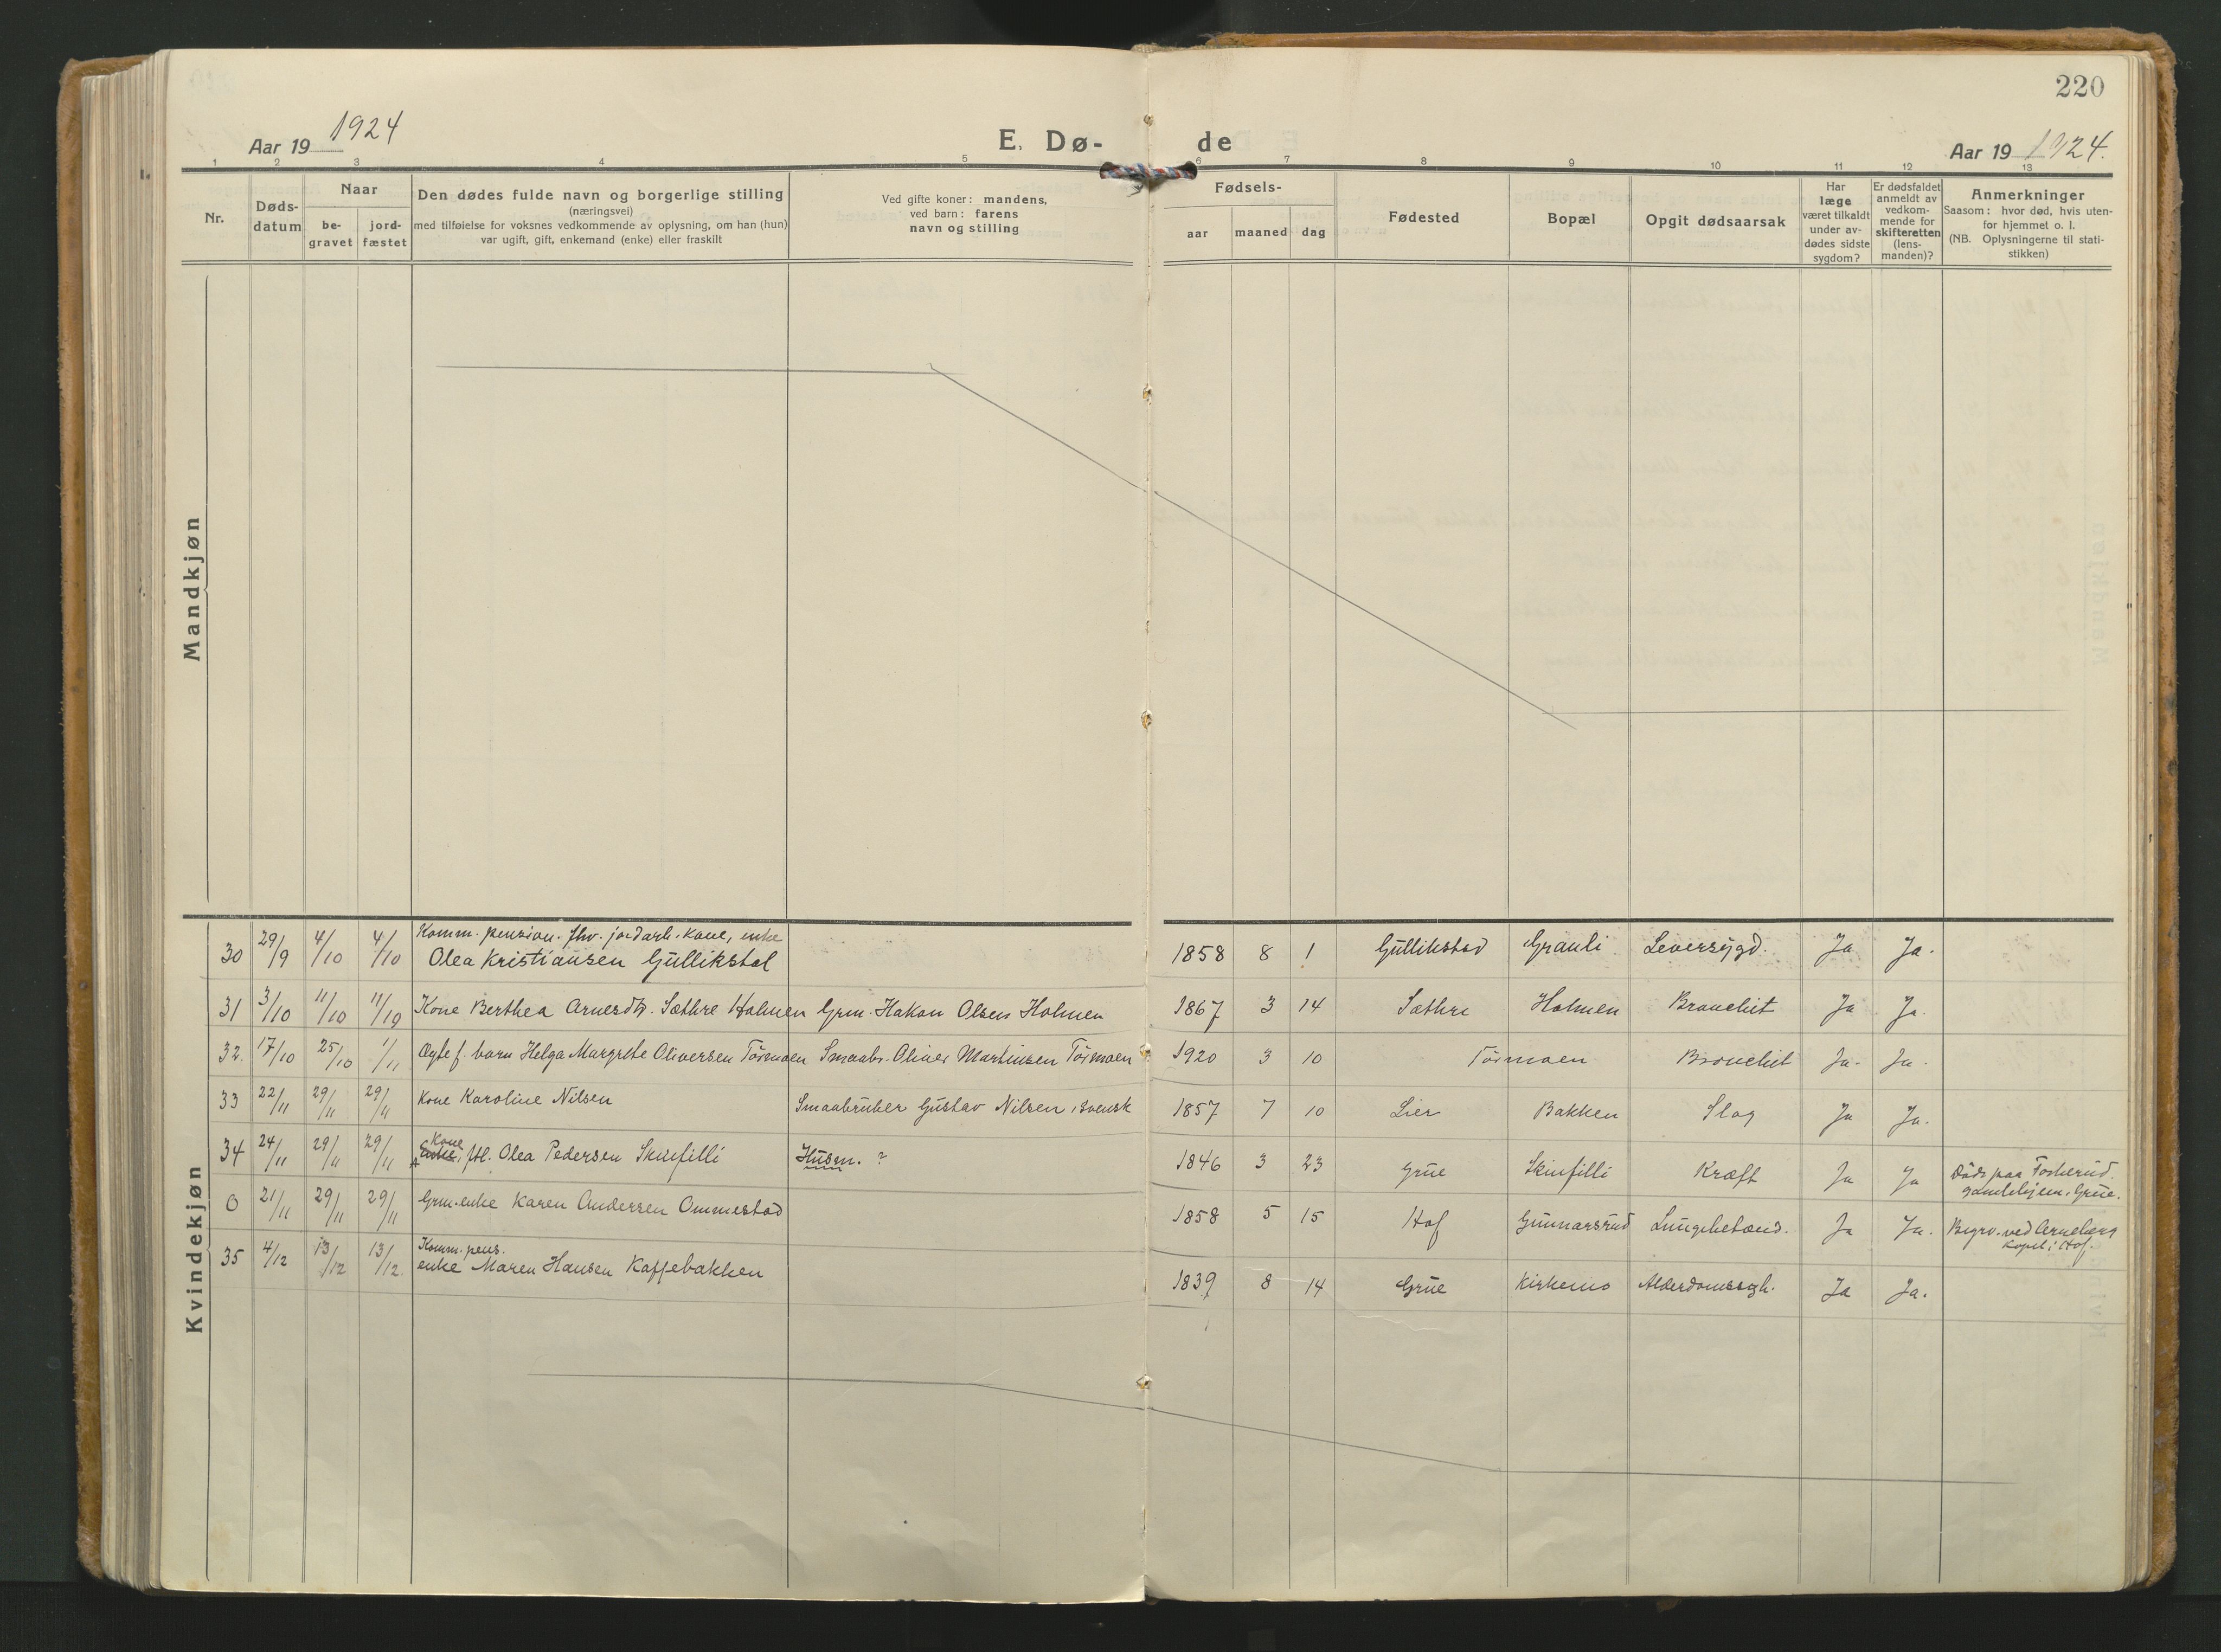 220
Aar 19 1924
E. Dø-
de
Aar 19 1924.
1 2 3 4 5 6 7 8 9 10 11 12 13
Nr.
Døds-
datum
Naar
be-
gravet
jord-
fæstet
Den dødes fulde navn og borgerlige stilling
(næringsvei)
med tilføielse for voksnes vedkommende av oplysning, om han (hun)
var ugift, gift, enkemand (enke) eller fraskilt
Ved gifte koner: mandens,
ved barn: farens
navn og stilling
Fødsels-
aar maaned dag
Fødested
Bopæl
Opgit dødsaarsak
Har
læge
været tilkaldt
under av-
dødes sidste
sygdom?
Er dødsfaldet
anmeldt av
vedkom-
mende for
skifteretten
(lens-
manden)?
Anmerkninger
Saasom: hvor død, hvis uten-
for hjemmet o. l.
(NB. Oplysningerne til stati-
stikken)
Mandkjøn
Kvindekjøn
Komm. pension. fhv. jordarb. kone, enke
30 29/9 4/10 4/10 Olea Kristiansen Gullikstad 1858 8 1 Gullikstad Grauli Leversygd. Ja Ja.
31 3/10 11/10 11/10 Kone Berthea Arnesdtr. Sæthre Holmen Grm. Hakon Olsen Holmen 1867 3 14 Sæthre Holmen Bronchit Ja Ja.
32. 17/10 25/10 1/11 Egtef. barn Helga Margrethe Oliversen Törmoen Smaabr. Oliver Martinsen Törmoen 1920 3 10 Törmoen Bronchit Ja. Ja.
33 22/11 29/11 29/11 Kone Karoline Nilsen Smaabruker Gustav Nilsen, svensk 1857 7 10 Lier Bakken Slag Ja Ja.
Kone
34 24/11 29/11 29/11 Enke, fhl. Olea Pedersen Skinfilli Husm. ? 1846 3 23 Grue Skinfilli Kræft Ja Ja Død paa Fosherud
gamlehjem, Grue.
0 21/11 29/11 29/11 Grm. enke Karen Andersen Ommestad 1858 5 15 Hof Gunnarsrud Lungebetænd. Ja Ja. Begrv. ved Arneberg
kapel i Hof.
Komm. pens.
35 4/12 13/12 13/12. enke Maren Hansen Kaffebakken 1839 8 14 Grue Kirkemo Alderdomssgh. Ja Ja.